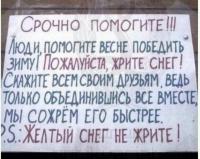 СРОЧНО ПОМОГИТЕ!!!
ЛЮДИ, ПОМОГИТЕ ВЕСНЕ ПОБЕДИТЬ
ЗИМУ! ПОЖАЛУЙСТА, ЖРИТЕ СНЕГ!
СКАЖИТЕ ВСЕМ СВОИМ ДРУЗЬЯМ, ВЕДЬ
ТОЛЬКО ОБЪЕДИНИВШИСЬ ВСЕ ВМЕСТЕ,
МЫ СОЖРЁМ ЕГО БЫСТРЕЕ.
P.S.: ЖЕЛТЫЙ СНЕГ НЕ ЖРИТЕ!